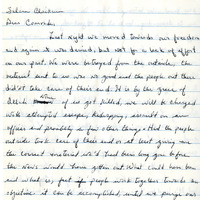 Salem Chairman
Dear Comrad,
Last night we moved towards our freedom
and again it was denied, but not for a lack of effort
on our part. We were betrayed from the outside, the
material sent to us was no good and the people out there
did not take care of their end. It is by the grace of
that none of us got killed, we will be charged
with attempted escape, kidnapping, assault on an
officer and probably a few other things. Had the people
outside took care of their end or at least giving me
the correct material we'd have been long gone before
the news would have gotten out. What could have been
and what is fact if people work together towards an
objective it can be accomplished until we purge our